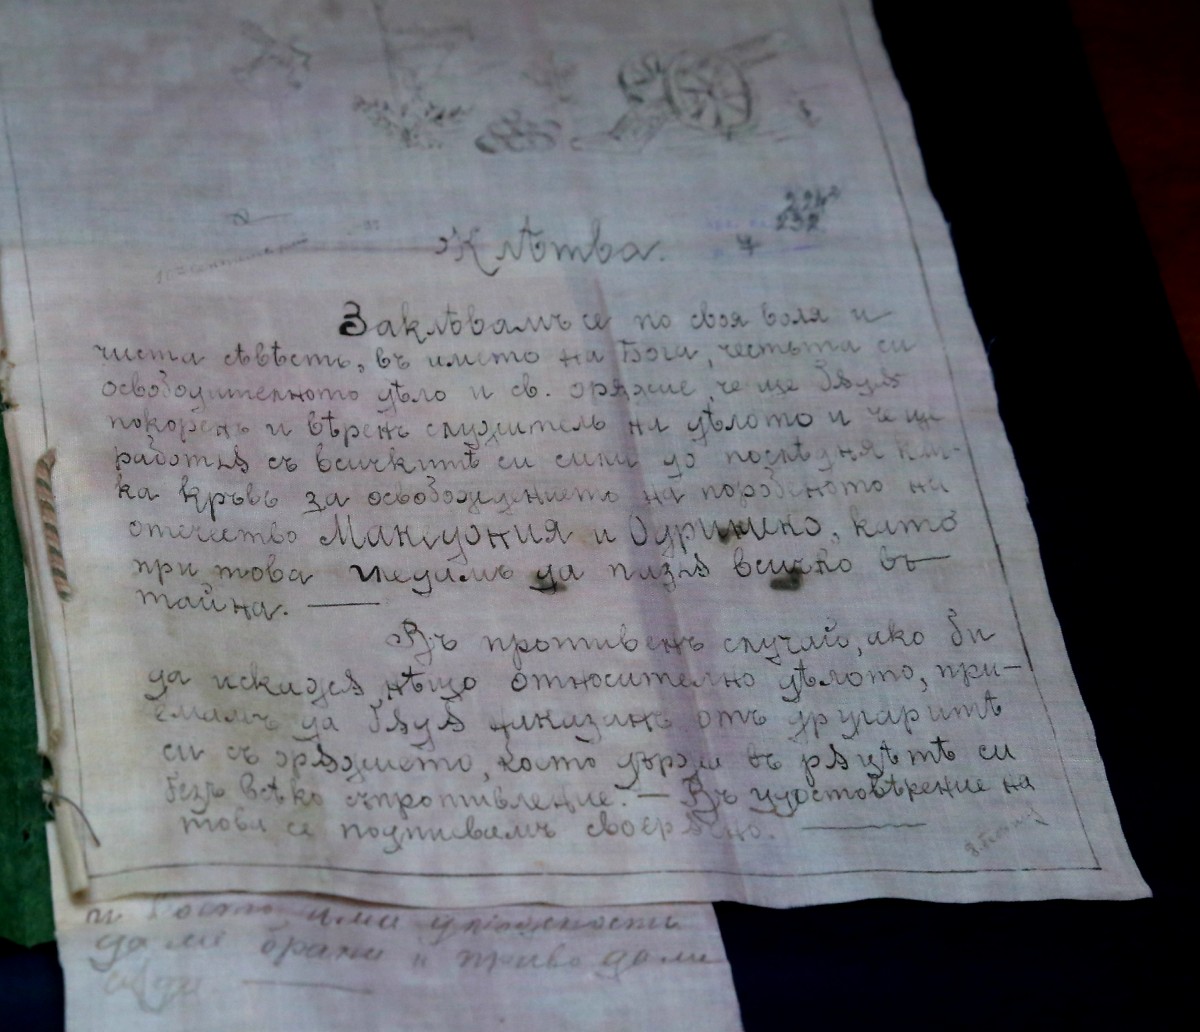 224
232
Клѣтва.
Заклѣвамъ се по своя воля и
чиста съвѣсть, въ името на Бога, честьта си
освободителното дѣло и св. орѫжие, че ще бѫдѫ
покоренъ и вѣренъ служитель на дѣлото и че ще
работѭ съ всичкитѣ си сили до послѣдня кап-
ка кръвь за освобождението на поробеното ни
отечество Македония и Одринско, като
при това щедимъ да пазѭ всичко въ
тайна. —
Въ противенъ случай, ако би
да искажѫ нѣщо относително дѣлото, при-
емамъ да бѫдѫ наказанъ отъ другаритѣ
си съ орѫжието, което държи въ рѫцѣтѣ си
безъ всѣко съпротивление. — Въ удостовѣрение на
това се подписвамъ своерѫчно. —
да ме брани и